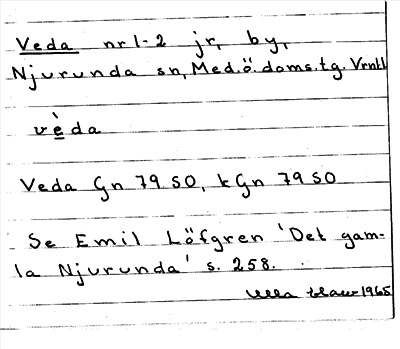 Veda nr 1-2 jr, by,
Njurunda sn, Med.ö.doms.tg. Vrnl
vèda
Veda Gn 79 SO, kGn 79 SO
Se Emil Löfgren 'Det gam-
la Njurunda' s. 258.
Ulla 1965